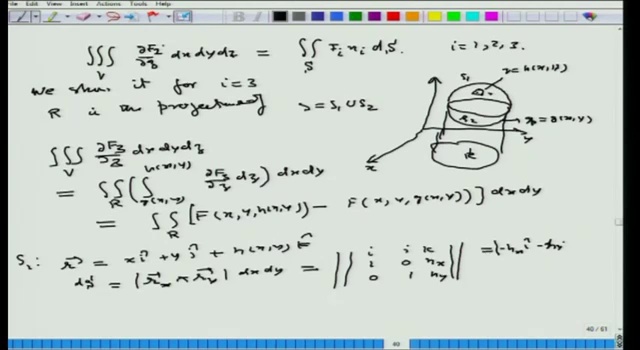 File Edit View Insert Actions Tools Help
∭_V ∂F_i/∂z dx dy dz = ∬_S F_i n_i dS. i = 1, 2, 3.
we show it for i = 3
S_1 z = h(x,y)
R is the projection of S = S_1 ∪ S_2
S_2 z = g(x,y)
y
x R
∭_V ∂F_3/∂z dx dy dz
= ∬_R ( ∫_{g(x,y)}^{h(x,y)} ∂F_3/∂z dz ) dx dy
= ∬_R [ F(x, y, h(x,y)) - F(x, y, g(x,y)) ] dx dy
S_1: r⃗ = x î + y ĵ + h(x,y) k̂
dS = | r⃗_x × r⃗_y | dx dy = || i j k 1 0 h_x 0 1 h_y || = |-h_x î - h_y
40 / 61
40